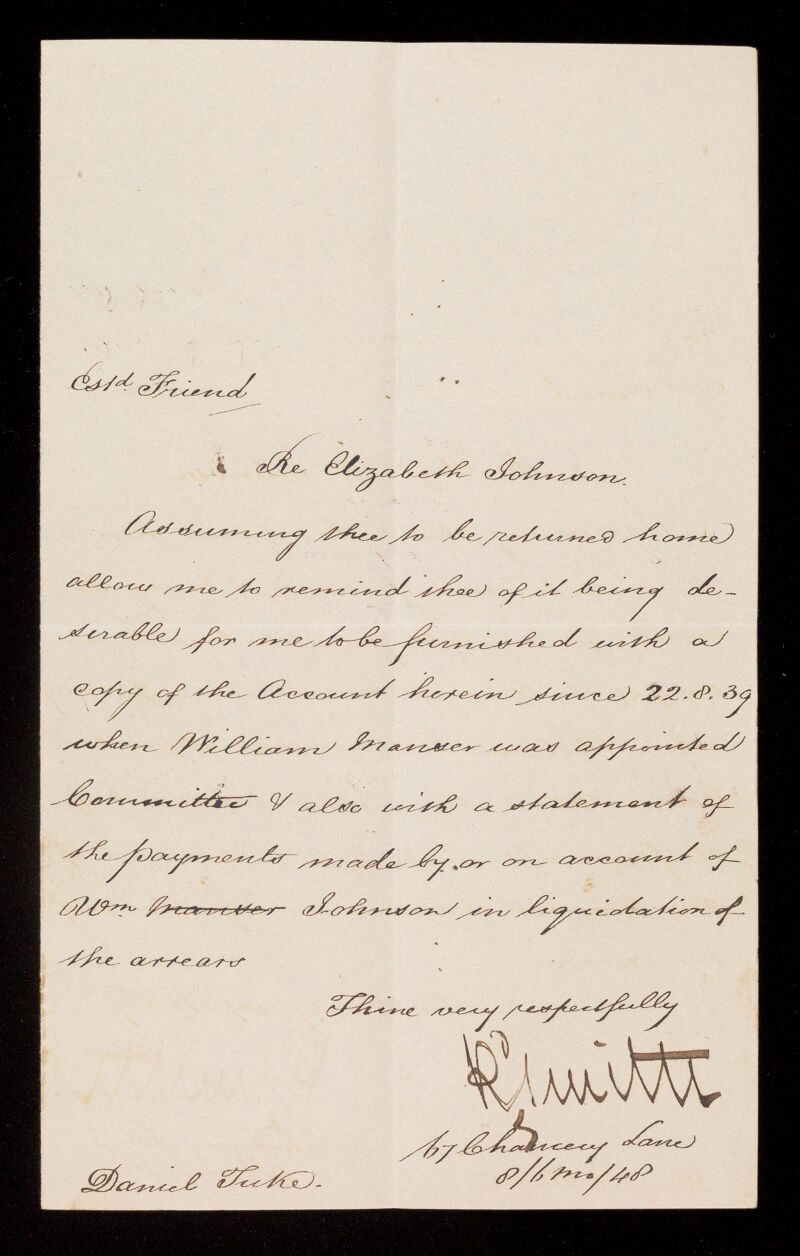 Estd. Friend
Re Elizabeth Johnson.
Assuming thee to be returned home
allow me to remind thee of it being de-
sirable for me to be furnished with a
copy of the Account herein since 22.8.39
when William Manser was appointed
Committee & also with a statement of
the payments made by or on account of
Wm Manser Johnson in liquidation of
the arrears
Thine very respectfully
67 Chancery Lane
8/6 mo/48
Daniel Tuke.